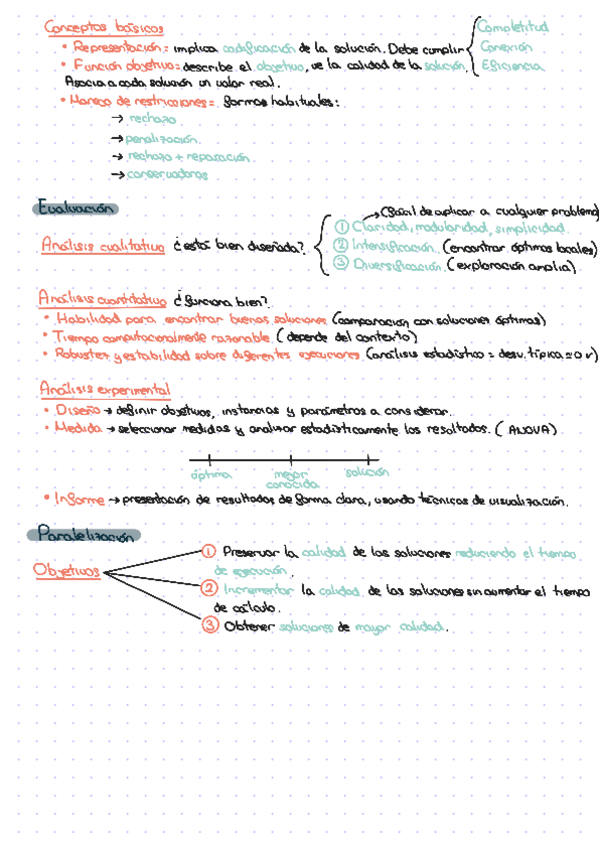 Conceptos básicos
• Representación = implica codificación de la solución. Debe cumplir { Completitud
Conexión
Eficiencia
• Función objetivo = describe el objetivo, ve la calidad de la solución.
Asocia a cada solución un valor real.
• Manejo de restricciones = formas habituales:
→ rechazo
→ penalización
→ rechazo + reparación
→ conservadoras
Evaluación
→ (fácil de aplicar a cualquier problema)
Análisis cualitativo ¿está bien diseñada? { ① Claridad, modularidad, simplicidad.
② Intensificación. (encontrar óptimos locales)
③ Diversificación. (exploración amplia)
Análisis cuantitativo ¿funciona bien?
• Habilidad para encontrar buenas soluciones (comparación con soluciones óptimas)
• Tiempo computacionalmente razonable (depende del contexto)
• Robustez y estabilidad sobre diferentes ejecuciones (análisis estadístico = desv. típica = 0 v)
Análisis experimental
• Diseño → definir objetivos, instancias y parámetros a considerar.
• Medida → seleccionar medidas y analizar estadísticamente los resultados. (ANOVA)
óptima mejor conocida solución
• Informe → presentación de resultados de forma clara, usando técnicas de visualización.
Paralelización
Objetivos
① Preservar la calidad de las soluciones reduciendo el tiempo
de ejecución.
② Incrementar la calidad de las soluciones sin aumentar el tiempo
de cálculo.
③ Obtener soluciones de mayor calidad.